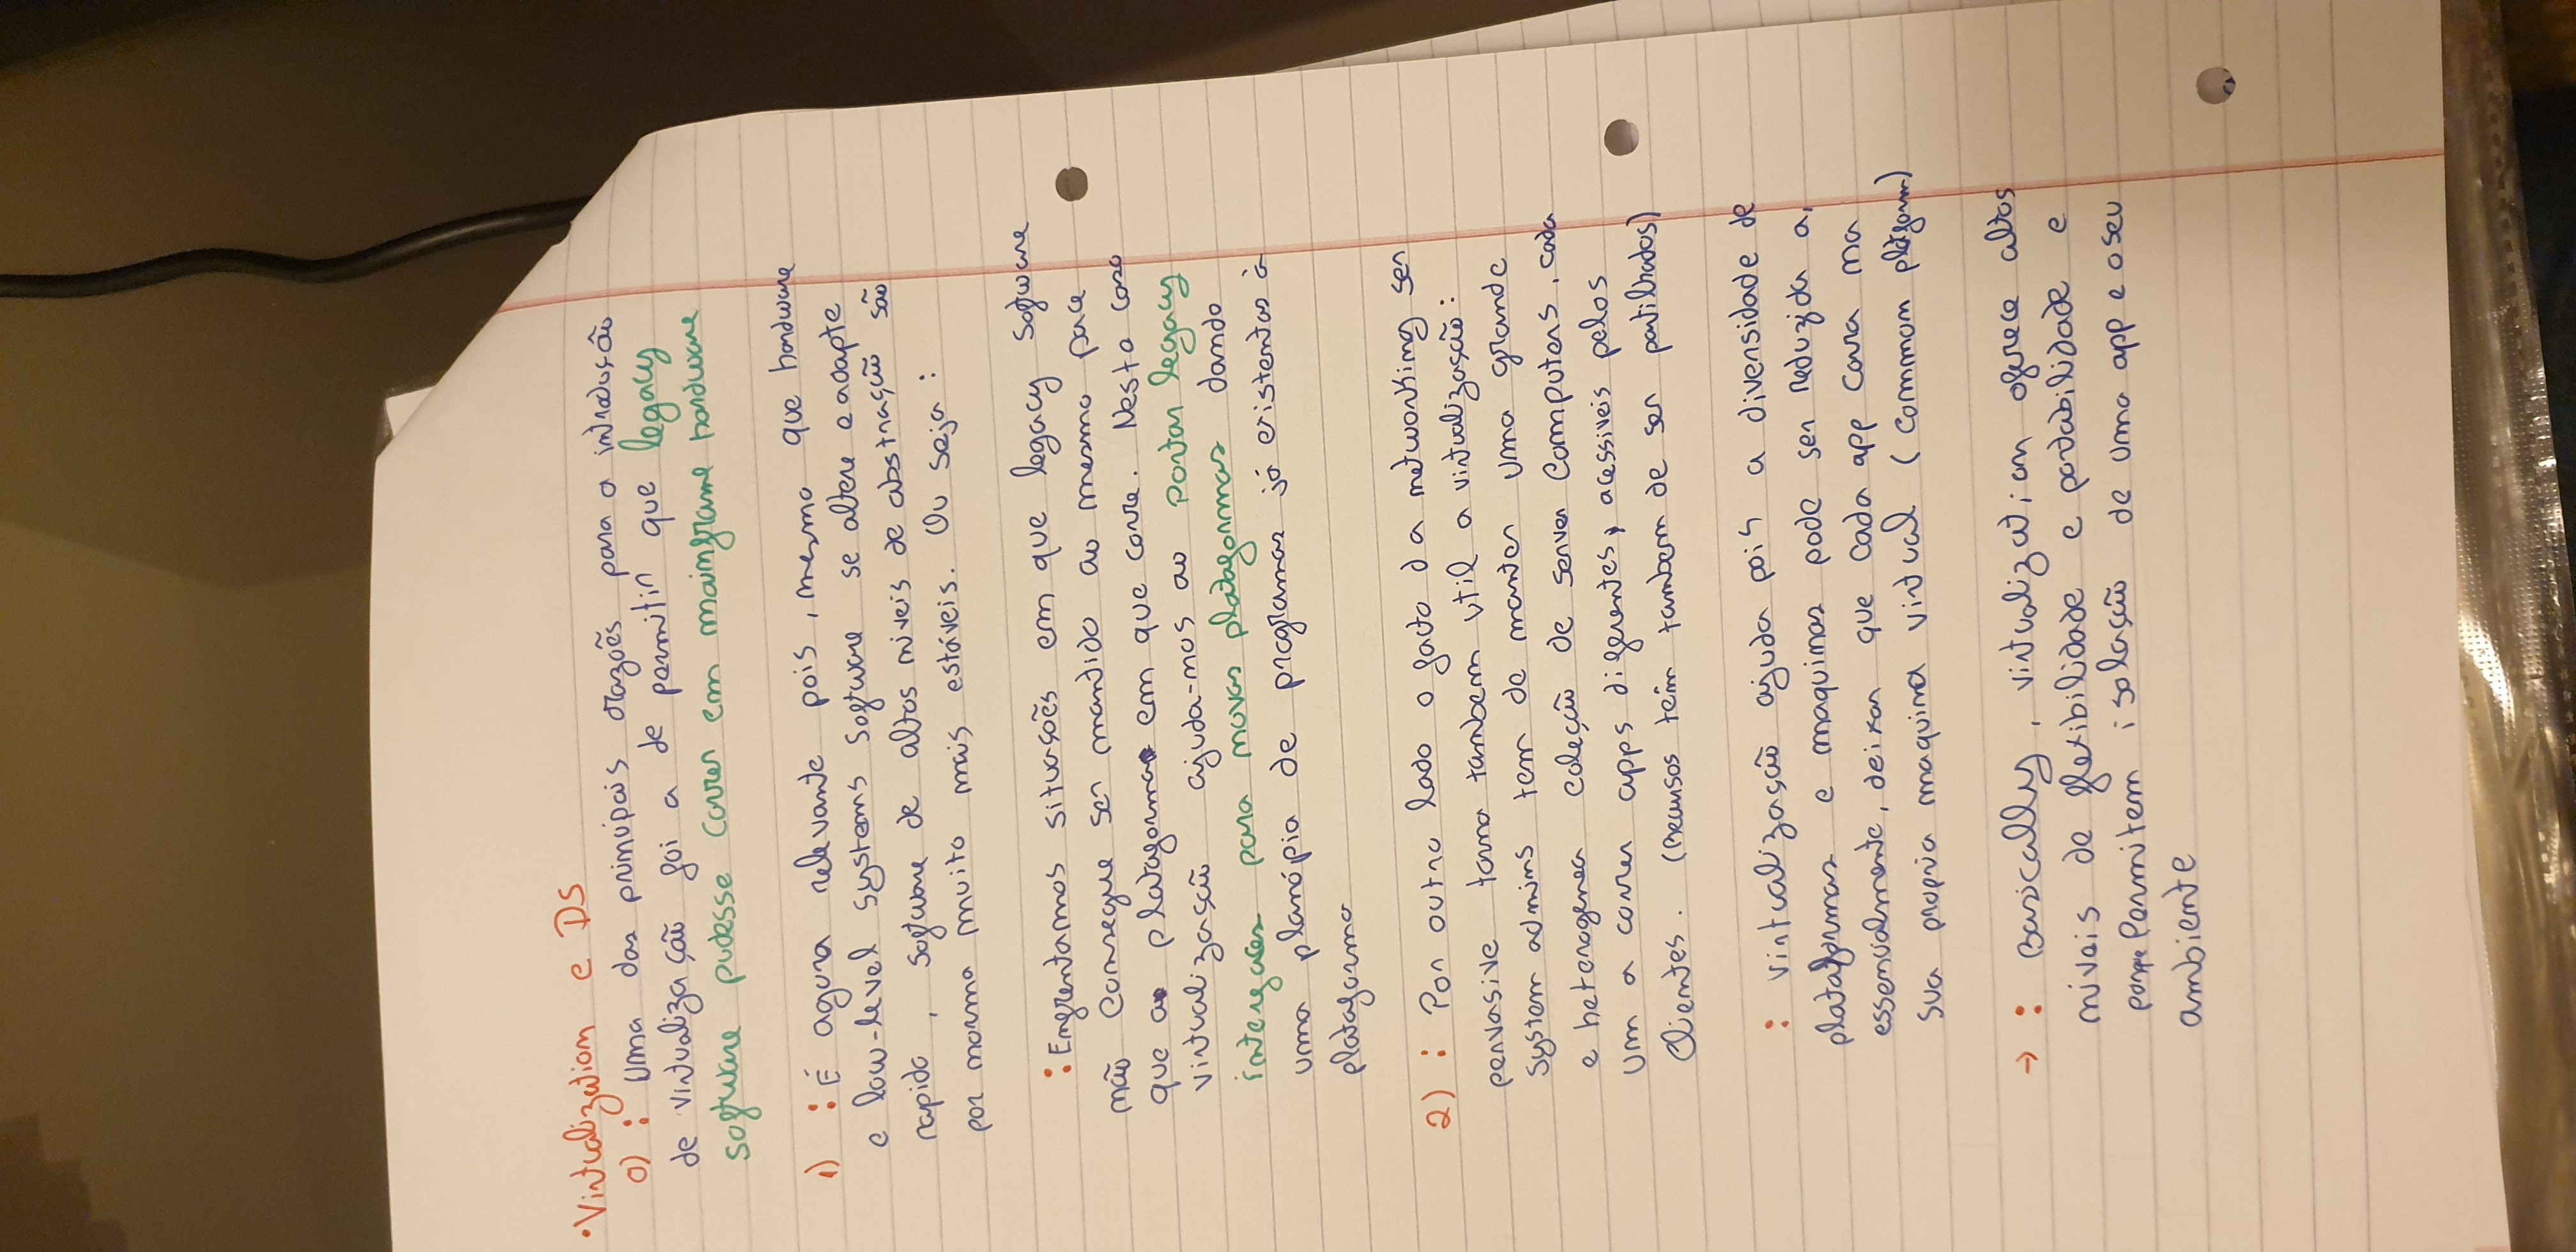 •Virtualization e DS
0) : Uma das principais razoẽs para a introdusão
de virtualização foi a de permitir que legacy
software pudesse correr em mainframe hardware
1) : É agora relevante pois, mesmo que hardware
e low-level systems software se altere e adapte
rapido, software de altos niveis de abstração são
por norma muito mais estáveis. Ou seja :
: Enfrentamos situasoẽs em que legacy software
não consegue ser mantido ao mesmo pace
que a plataforma em que corre. Nesta caso
virtualização ajuda-nos ao portar legacy
interfaces para novas plataformas dando
uma planópia de programas já existentas à
plataforma
2) : Por outro lado o facto da networking ser
pervasive torna tambem util a virtualização :
System admins tem de manter uma grande
e heterogenea coleção de server computers, cada
um a correr apps diferentes, acessiveis pelos
Clientes. (Recursos têm tambem de ser partilhados)
: virtualização ajuda pois a diversidade de
plataformas e maquinas pode ser reduzida a,
essencialmente, deixar que cada app corra na
sua propria maquina virtual (common platform)
→ : Basically, virtualization oferece altos
niveis de flexibilidade e portabilidade e
Permitem isolação de uma app e o seu
ambiente